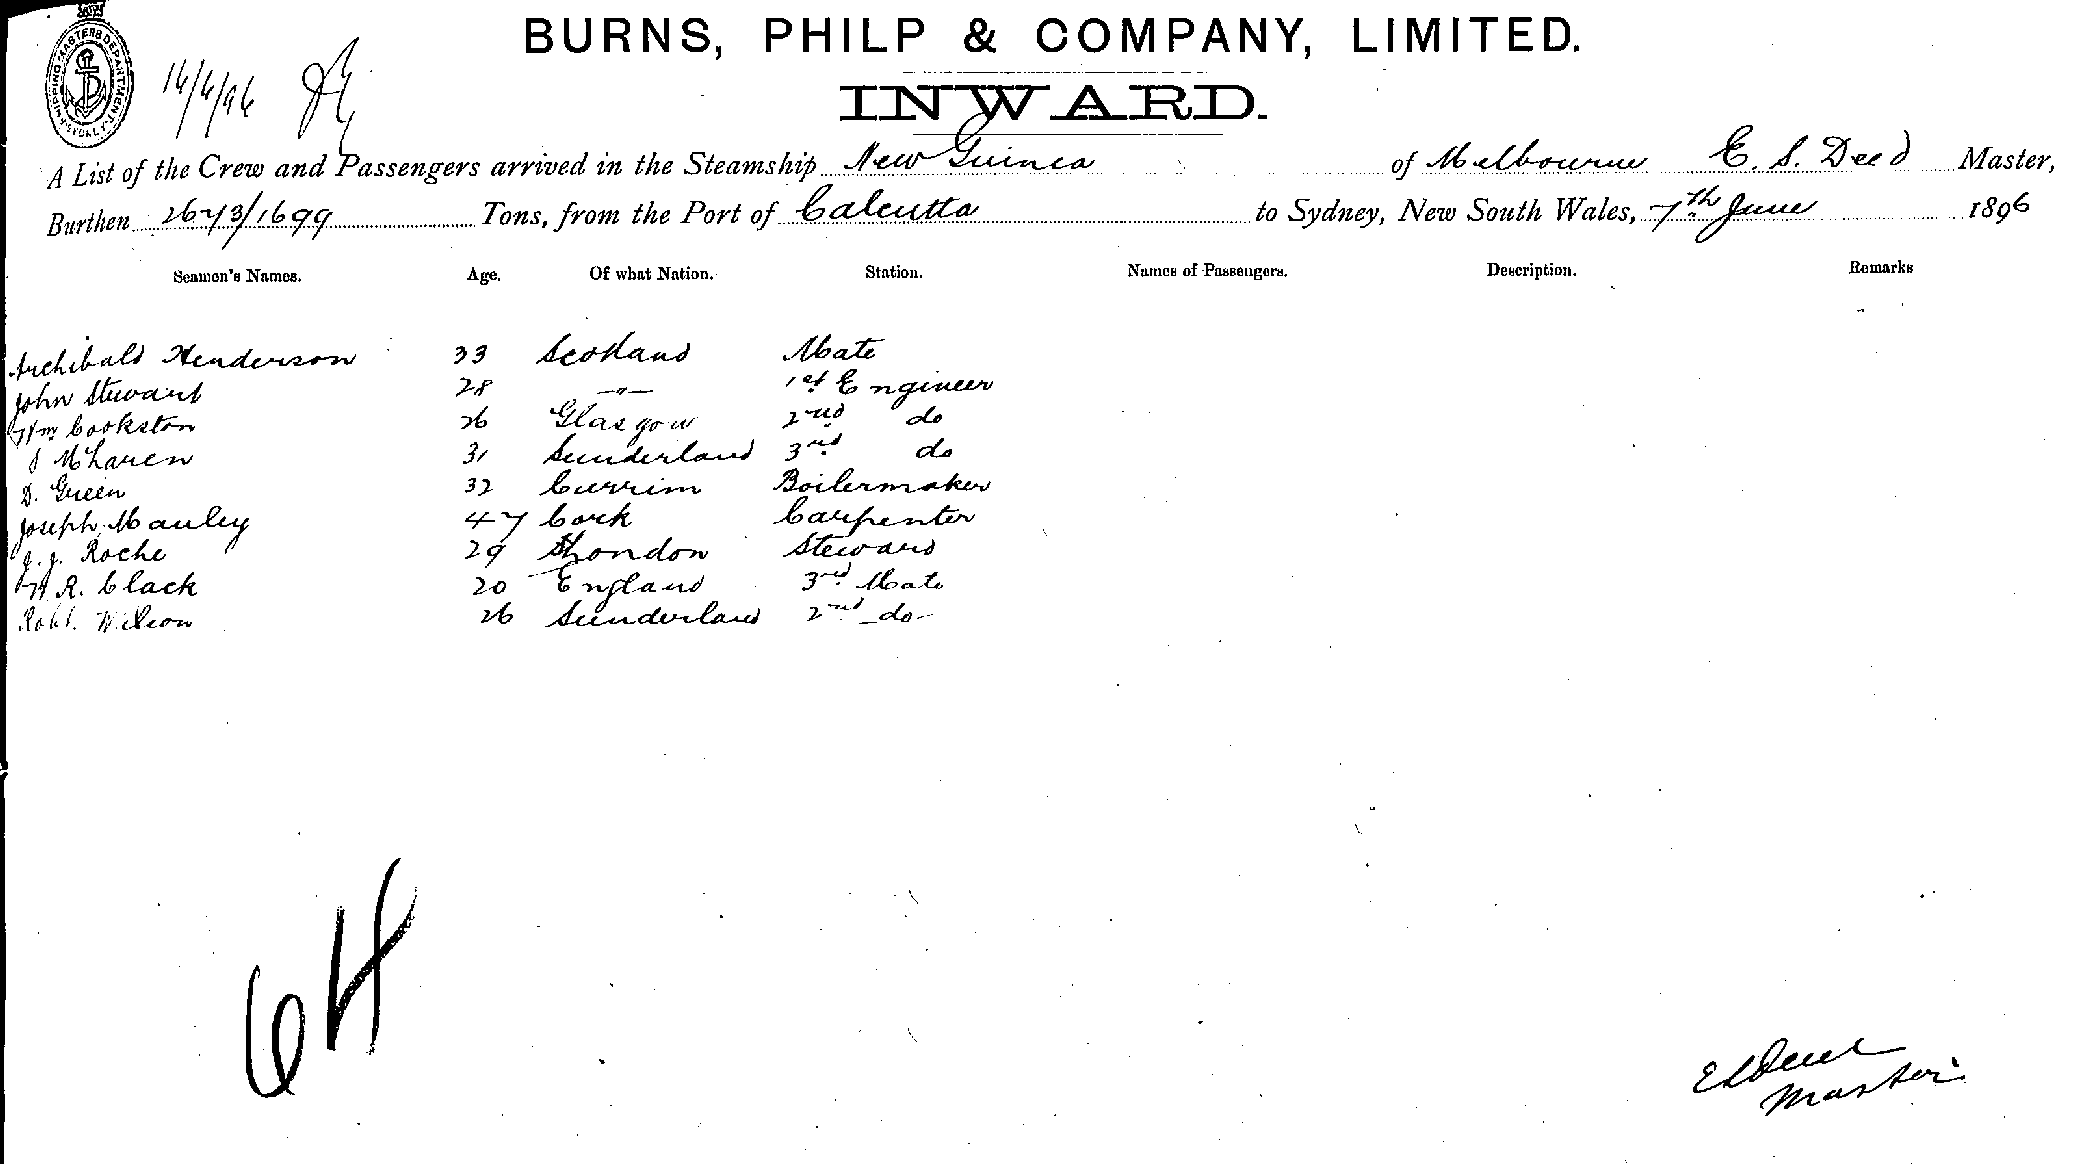 BURNS, PHILP & COMPANY, LIMITED.
INWARD.
SHIPPING MASTERS DEPARTMENT SYDNEY
16/6/96
A List of the Crew and Passengers arrived in the Steamship New Guinea of Melbourne E. S. Deed Master,
Burthen 2673/1699 Tons, from the Port of Calcutta to Sydney, New South Wales, 7th June 1896
Seamen's Names. Age. Of what Nation. Station. Names of Passengers. Description. Remarks
Archibald Henderson 33 Scotland Mate
John Stewart 28 —"— 1st Engineer
Wm Cookston 26 Glasgow 2nd do
J McLaren 31 Sunderland 3rd do
D. Green 32 Currim Boilermaker
Joseph Mauley 47 Cork Carpenter
J. J. Roche 29 London Steward
R. Clack 20 England 3rd Mate
Robt. Wilson 26 Sunderland 2nd do
64
E S Deed
Master